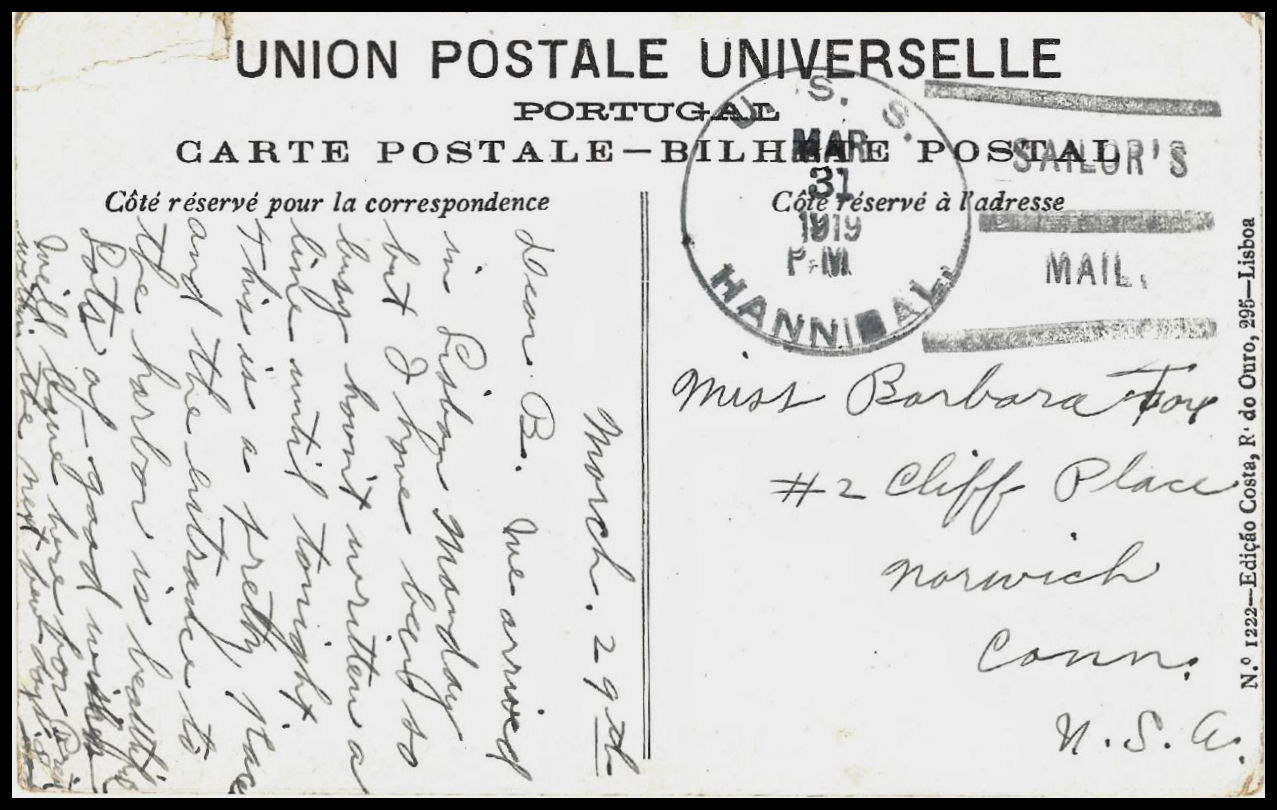 UNION POSTALE UNIVERSELLE
PORTUGAL
CARTE POSTALE—BILHETE POSTAL
Côté réservé pour la correspondence
Côté réservé à l'adresse
U. S. S.
MAR
31
1919
P.M.
HANNIBAL.
SAILOR'S
MAIL.
March. 29th
Dear B. We arrived
in Lisbon Monday
but I have been so
busy havn't written a
line until tonight
This is a pretty place
and the entrance to
the harbor is beautiful
Lots of good wishes
Will leave here for
within the next few days
Miss Barbara Fox
#2 Cliff Place
Norwich
Conn.
U.S.A.
N.º 1222—Edição Costa, R. do Ouro, 295—Lisboa